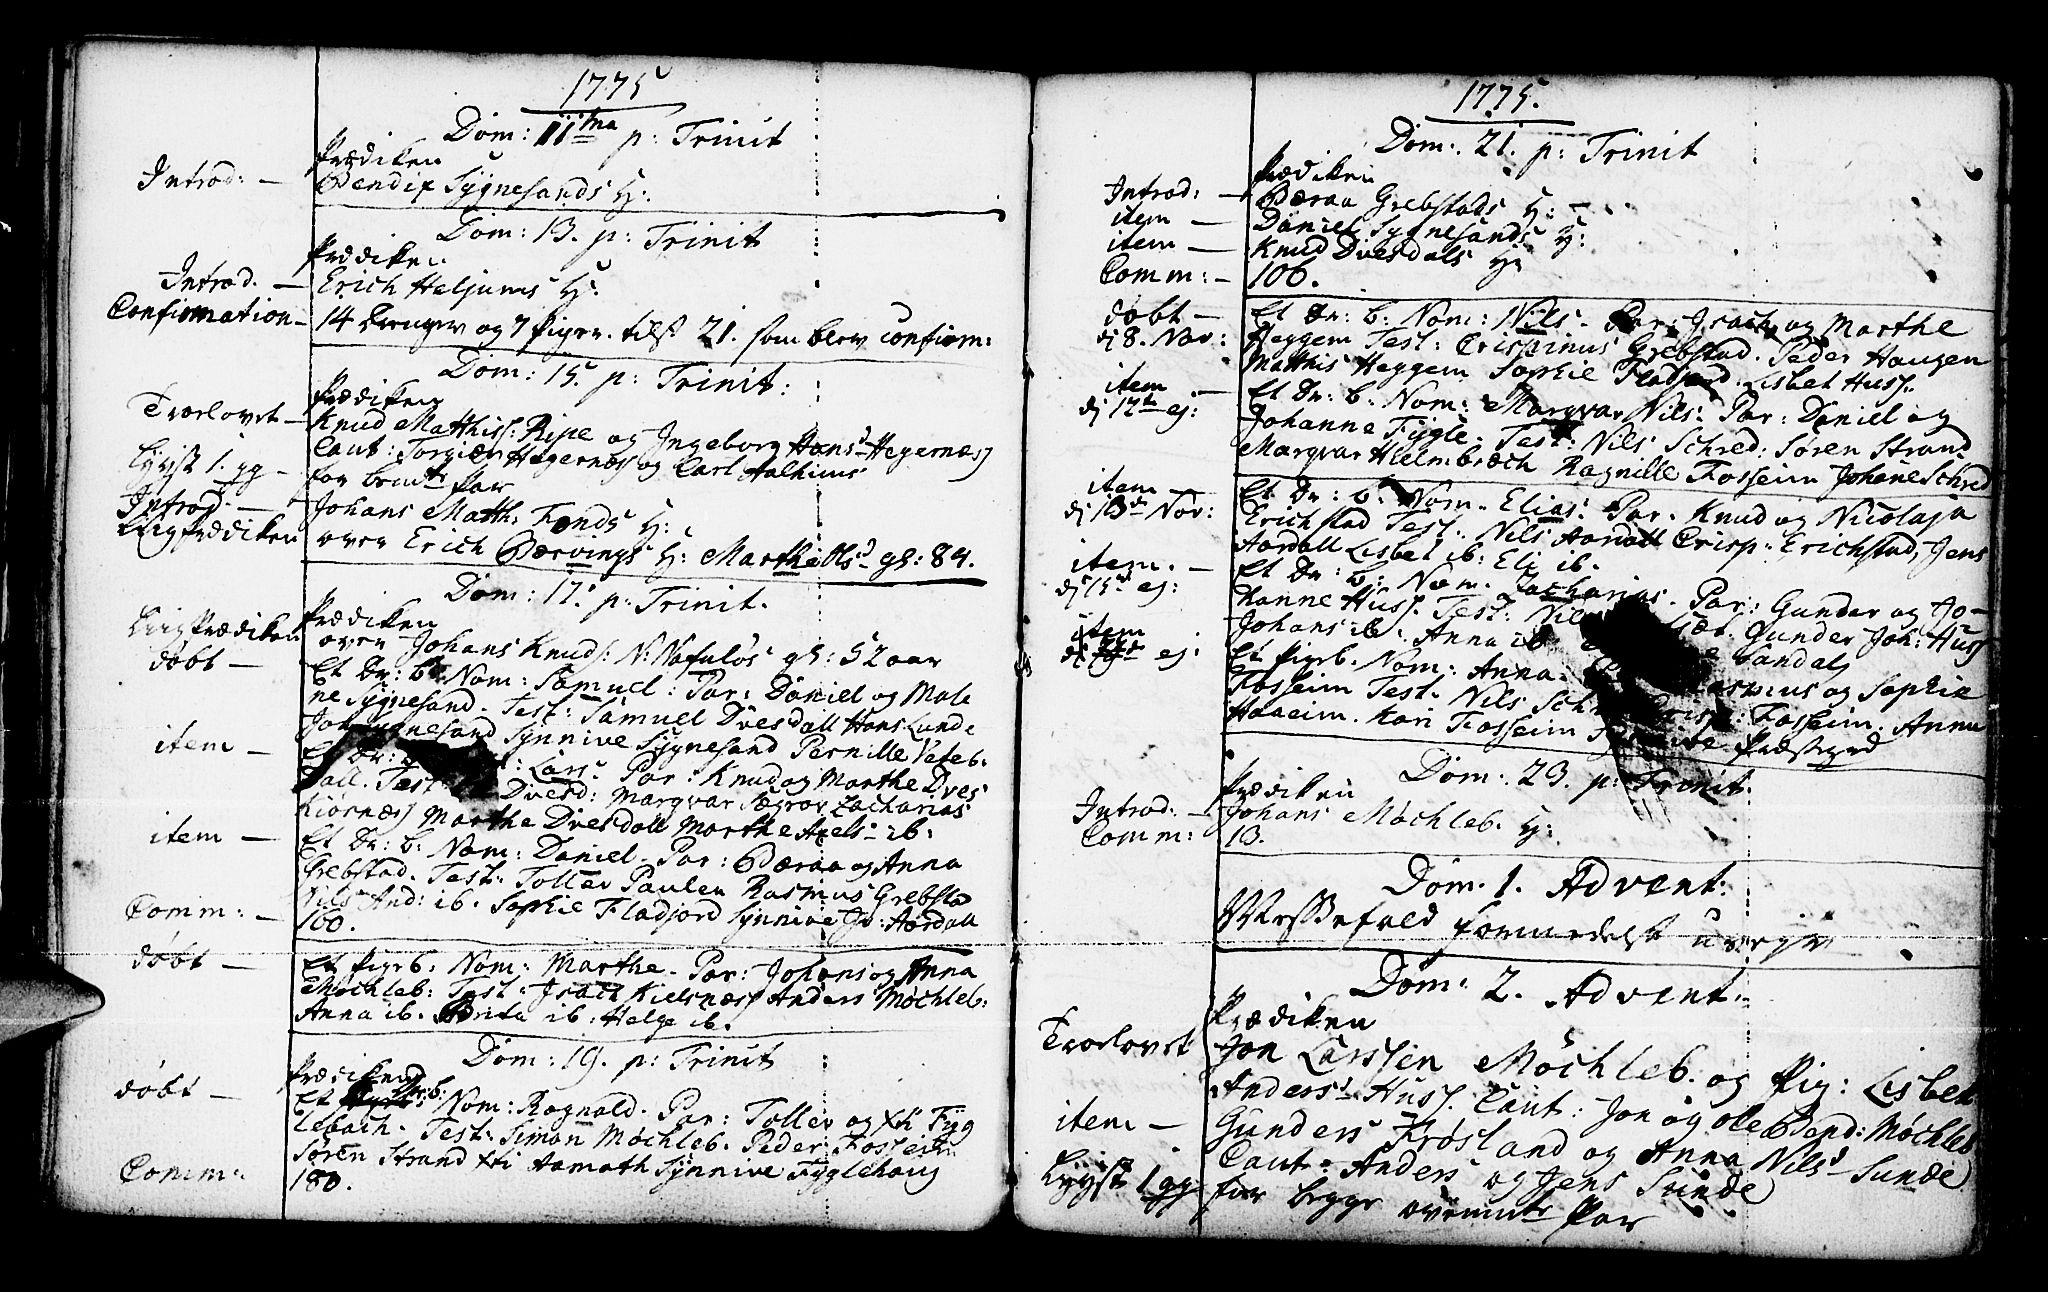 1775
Dom: 11ma p: Trinit
Prædiken
Introd: — Bendix Sygnesands H:
Dom: 13. p: Trinit
Prædiken
Introd. — Erich Heljums H:
Confirmation — 14 drenger og 7 piger. tilst 21. som blev confirm:
Dom: 15. p: Trinit:
Prædiken
Trorlovet — Knud Matthiss: Ripe og Ingeborg Hansd Hegernæss
Caut: Torgier Hegernæss og Carl Aalhims
Lyyst 1. gg — for bemte par
Introd — Johans Matth: Fonds H:
Liigprædiken over Erich Bærvings H: Marthe Olsd gl: 84.
Dom: 17. p: Trinit.
Prædiken
Liigprædiken over Johans Knuds: N: gl: 52 aar
døbt — Et Dr: b: Nom: Samuel: Par: Daniel og Male
ne Sygnesand. Test: Samuel Dvesdall Hans Lunde
Joh: Sygnesand Synnive Sygnesand Pernille Veteb:
item — Et Dr: Lars. Par: Knud og Marthe Dves
dall. Test: Dvesd: Margvar Sægrov Zacharias
Kiørnæss Marthe Dvesdall Marthe Axelsd ib:
item — Et Dr: b: Nom: Daniel. Par: Bæraa og Anna
Grebstad. Test: Toller Paulen Rasmus Grebsta
Nils And: ib. Sophie Fladjord Synnive Jo: Aardall
Comm: — 160.
døbt — Et Pigeb: Nom: Marthe. Par: Johans og Anna
Møchleb: Test: Isach Kielsnæss Anders Møchleb:
Anna ib. Brita ib: Helge ib.
Dom: 19. p: Trinit
Prædiken
døbt — Et Dr: b: Nom: Ragnald. Par: Toller og Xti Fyg
lebach. Test: Simon Møchleb. Peder Fosseim
Søren Strand Xti Aamoth Synnive Fyglehoug
Comm: 180.
1775.
Dom: 21. p: Trinit
Prædiken
Introd: — Bæraa Grebstads H:
item — Daniel Sygnesands H:
item — Knud Dvesdals H:
Comm: — 100.
døbt — Et Dr: b: Nom: Nils. Par: Isach og Marthe
dj 8. Nov: Heggem Test: Crispinus Grebstad. Peder Haugen
Matthis Heggem Sophie Fladjord. Lisbet Huss.
item — Et Dr: b: Nom: Margvar Nils. Par: Daniel og
dj 12te ej: Johanne Fygle. Test: Nils Schred: Søren Strand
Margvar Hielmbræch Ragnille Fosseim Johane Schred
item — Et Dr: b: Nom. Elias. Par. Knud og Nicolaja
dj 13de Nov: Erichstad Test. Nils Aardall Crisp: Erichstad, Jens
Aardall Lisbet ib: Eli ib.
item. — Et Dr: b: Nom. Zacharias. Par: Gunder og Jo-
dj 15de ej: hanne Huss. Test: Nils Gunder Joh: Huss
Johans ib. Anna ib Sandals
item Et Pigeb. Nom: Anna. Rasmus og Sophie
dj ej: Fosseim Test. Nils Schr Crisp: Fosseim. Anna
Haaeim. Kari Fosseim Præstgrd
Dom: 23. p: Trinit.
Prædiken
Introd. — Johans Møchleb. H:
Comm: 13.
Dom. 1. Advent:
Messefald formedelst uvejr
Dom: 2. Advent.
Prædiken
Trorlovet Jon Larssen Møchleb. og Pig: Lisbet
Andersd Huss. Caut: Jon og Ole Bend: Møchleb
item — Gunders Frøsland og Anna Nilsd Sunde
Caut: Anders og Jens Sunde
Lyyst 1 gg for begge ovenmte Par